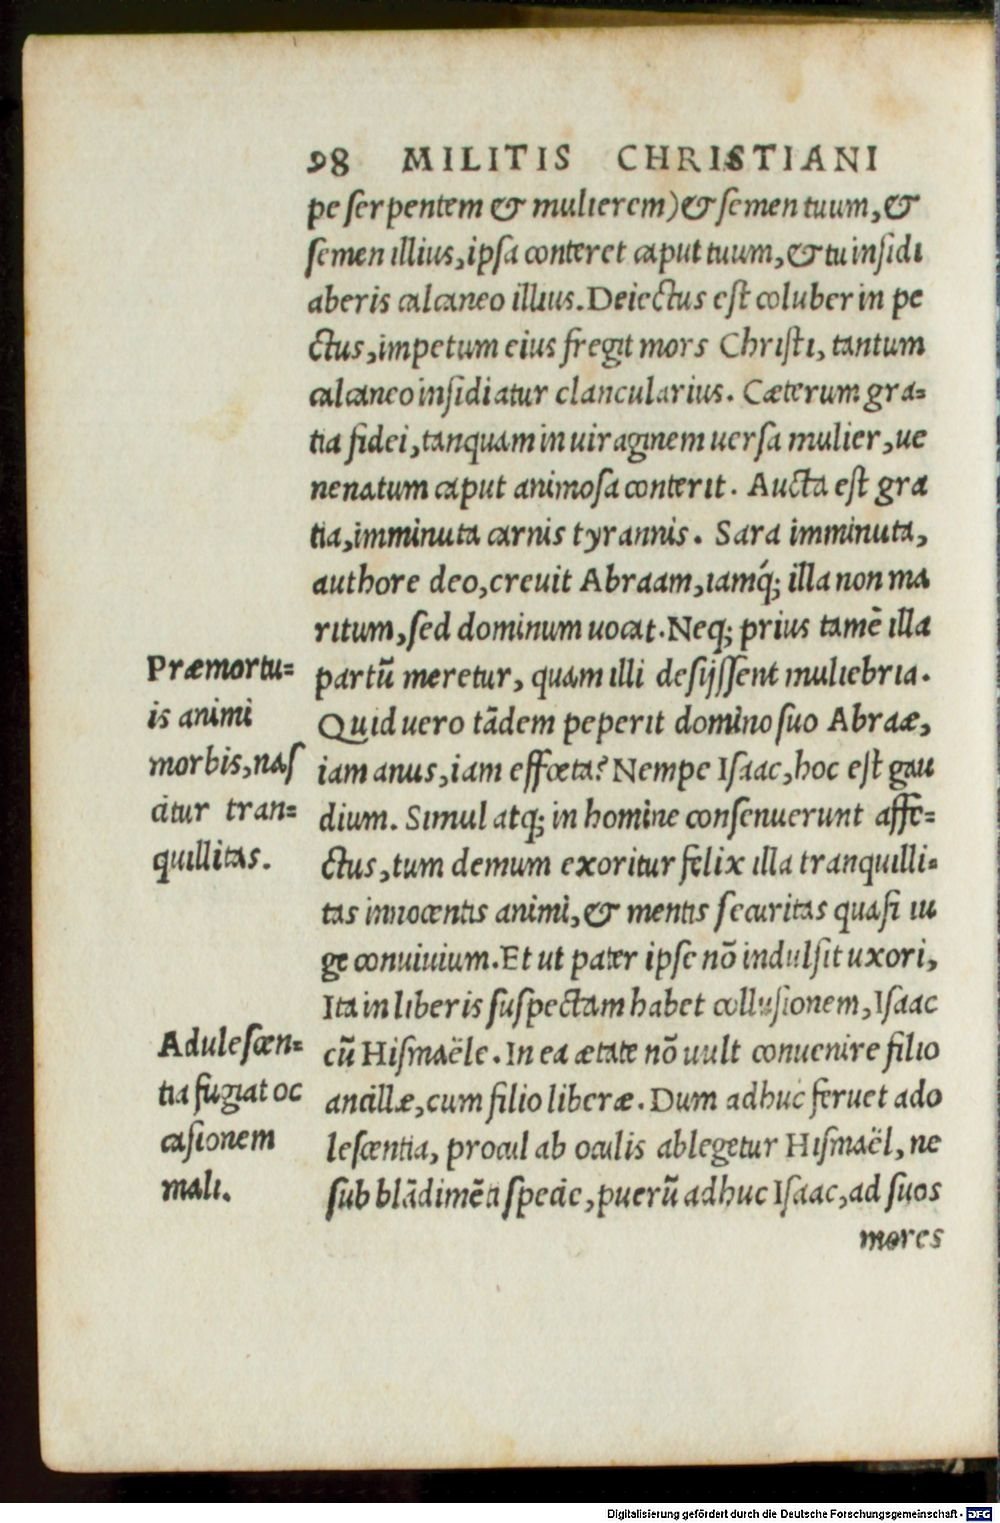 98 MILITIS CHRISTIANI
pe ſerpentem & mulierem) & ſemen tuum, &
ſemen illius, ipſa conteret caput tuum, & tu inſidi
aberis calcaneo illius. Deiectus eſt coluber in pe
ctus, impetum eius fregit mors Chriſti, tantum
calcaneo inſidiatur clancularius. Cæterum gra=
tia fidei, tanquam in uiraginem uerſa mulier, ue
nenatum caput animoſa conterit. Aucta eſt gra
tia, imminuta carnis tyrannis. Sara imminuta,
authore deo, creuit Abraam, iamq́; illa non ma
ritum, ſed dominum uocat. Neq; prius tamē illa
partū meretur, quam illi deſijſſent muliebria.
Quid uero tādem peperit domino ſuo Abraæ,
iam anus, iam effœta? Nempe Iſaac, hoc eſt gau
dium. Simul atq; in homine conſenuerunt affe=
ctus, tum demum exoritur felix illa tranquilli=
tas innocentis animi, & mentis ſecuritas quaſi iu
ge conuiuium. Et ut pater ipſe nō indulſit uxori,
Ita in liberis ſuſpectam habet colluſionem, Iſaac
cū Hiſmaële. In ea ætate nō uult conuenire filio
ancillæ, cum filio liberæ. Dum adhuc feruet ado
leſcentia, procul ab oculis ablegetur Hiſmaël, ne
ſub blādimēti ſpecie, puerū adhuc Iſaac, ad ſuos
mores
Præmortu=
is animi
morbis, naſ
citur tran=
quillitas.
Aduleſcen=
tia fugiat oc
caſionem
mali.
Digitalisierung gefördert durch die Deutsche Forschungsgemeinschaft - DFG